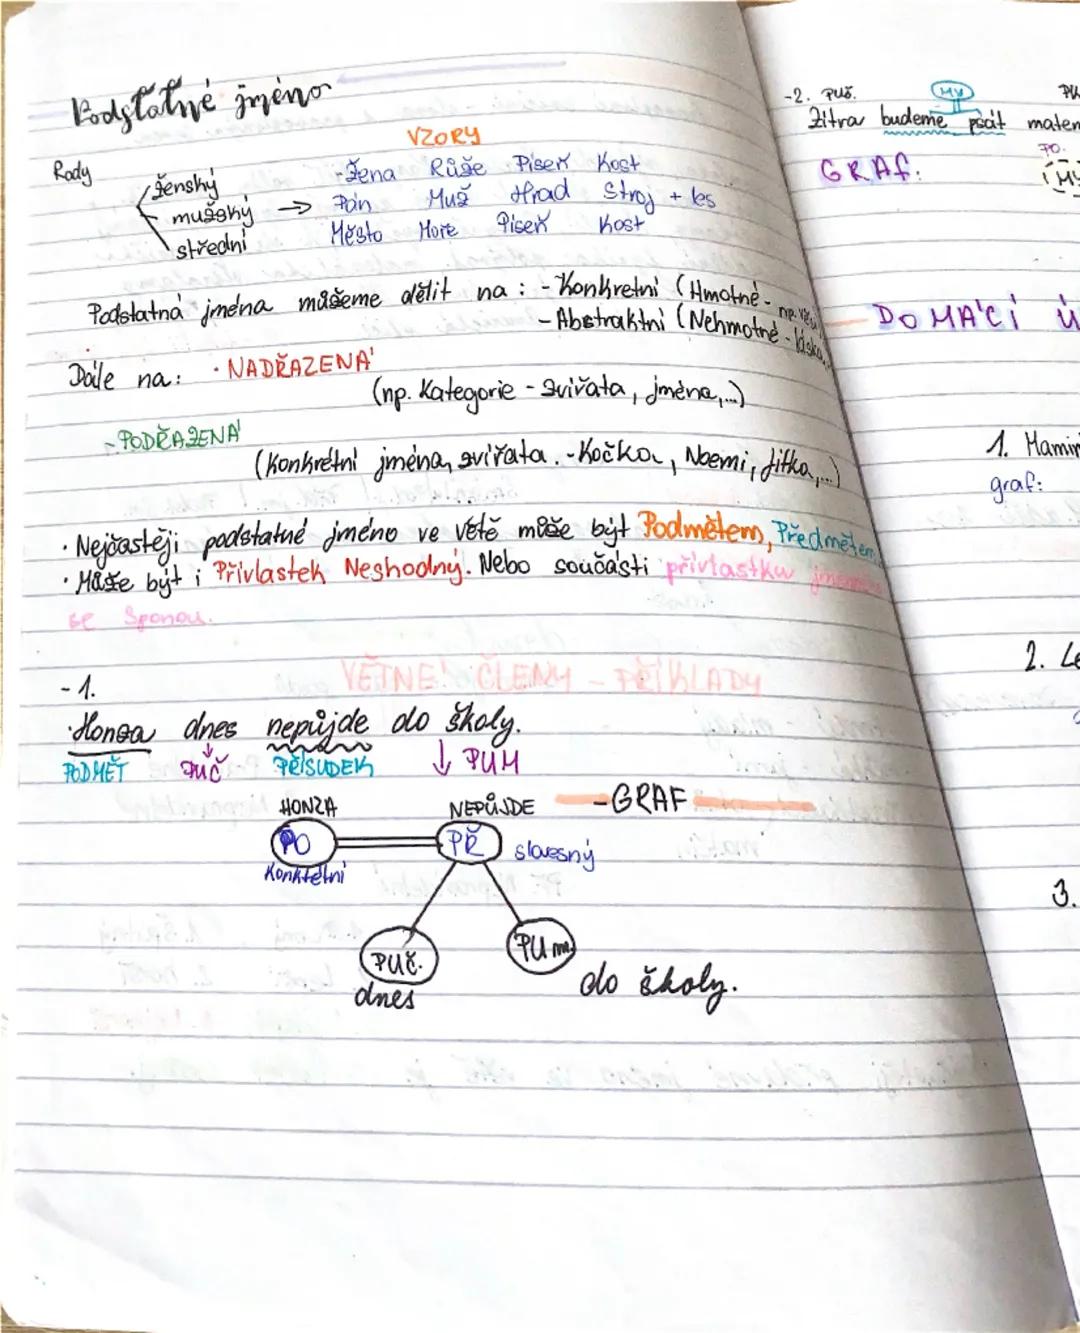 Podstatné jméno
VZORY
Rody
ženský
mužský
střední
-Žena Růže Píseň Kost
Pán Muž Hrad Stroj + les
Město Moře Píseň Kost
Podstatná jména můžeme dělit na: - Konkretní (Hmotné - np.
- Abstraktní (Nehmotné - láska,
Dále na: · NADŘAZENÁ
(np. Kategorie - zvířata, jména,...)
- PODŘAZENÁ
(Konkrétní jména, zvířata. - Kočka, Noemi, Jitka,...)
· Nejčastěji podstatné jméno ve větě může být Podmětem, Předmětem
· Může být i Přívlastek Neshodný. Nebo součástí přívlastku
se Sponou.
VĚTNÉ ČLENY - PŘÍKLADY
-1.
·Honza dnes nepůjde do školy.
PODMĚT PUČ PŘÍSUDEK ↓ PUM
HONZA NEPŮJDE -GRAF
PO PŘ slovesný
Konktétní
PUČ. PUm.
dnes do školy.
-2. PUČ. MV
Zítra budeme psát matem
PO.
GRAF:
DOMÁCÍ Ú
1. Mamin
graf:
2. Le
3.